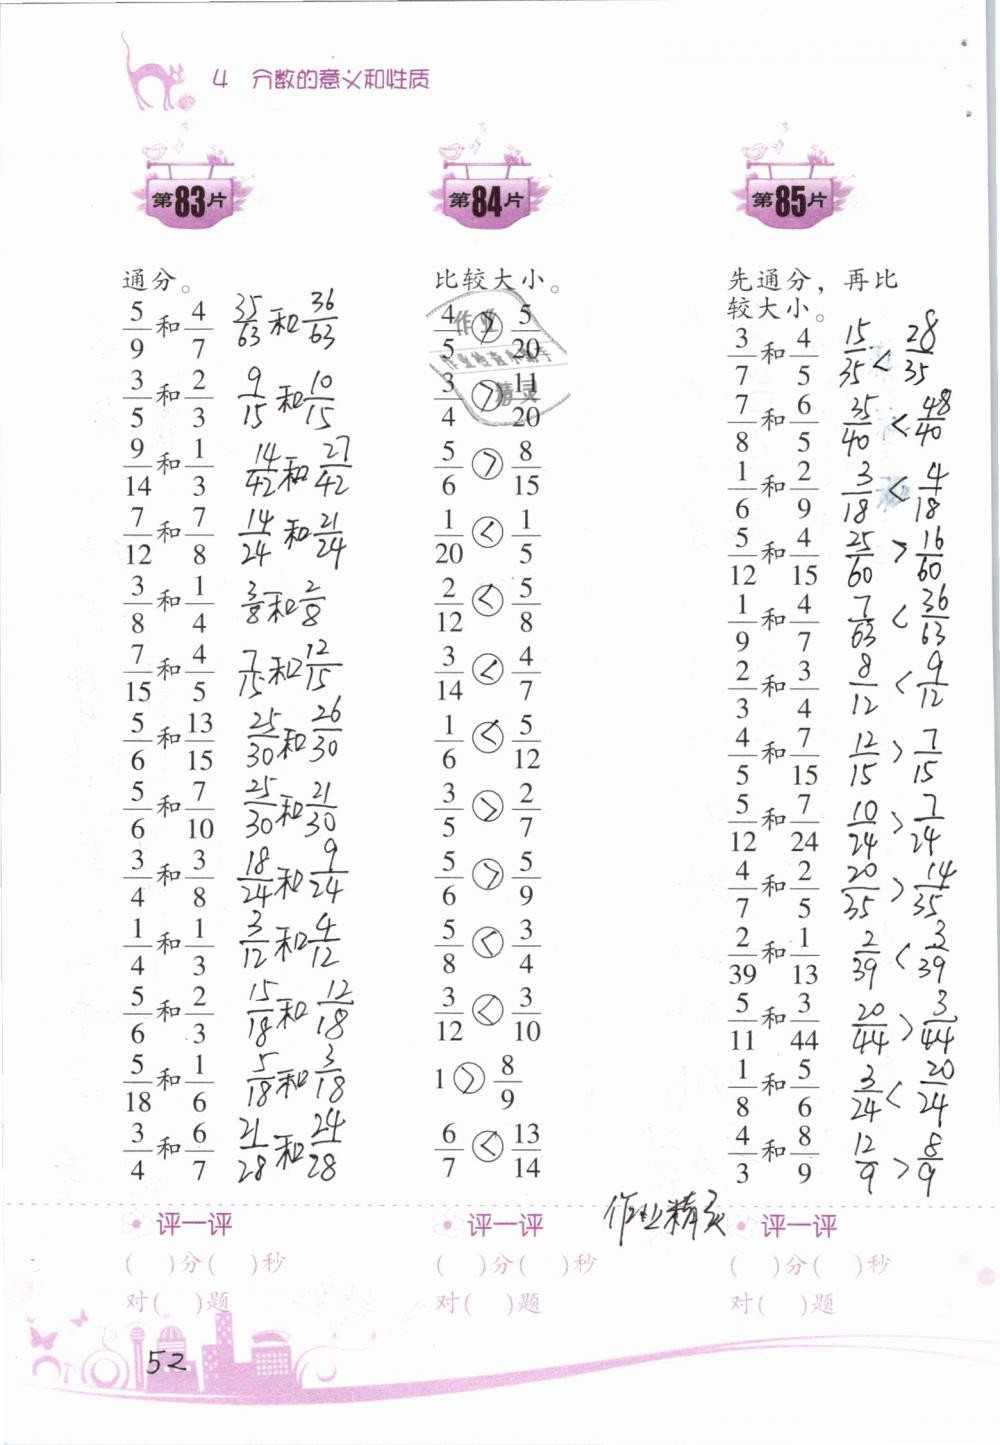 4 分数的意义和性质
第83片
通分。
5/9 和 4/7 35/63 和 36/63
3/5 和 2/3 9/15 和 10/15
9/14 和 1/3 14/42 和 27/42
7/12 和 7/8 14/24 和 21/24
3/8 和 1/4 3/8 和 2/8
7/15 和 4/5 7/15 和 12/15
5/6 和 13/15 25/30 和 26/30
5/6 和 7/10 25/30 和 21/30
3/4 和 3/8 18/24 和 9/24
1/4 和 1/3 3/12 和 4/12
5/6 和 2/3 15/18 和 12/18
5/18 和 1/6 5/18 和 3/18
3/4 和 6/7 21/28 和 24/28
评一评
( )分( )秒
对( )题
第84片
比较大小。
4/5 > 5/20
3/4 > 11/20
5/6 > 8/15
1/20 < 1/5
2/12 < 5/8
3/14 < 4/7
1/6 < 5/12
3/5 > 2/7
5/6 > 5/9
5/8 < 3/4
3/12 < 3/10
1 > 8/9
6/7 < 13/14
作业
精灵
评一评
( )分( )秒
对( )题
第85片
先通分，再比
较大小。
3/7 和 4/5 15/35 < 28/35
7/8 和 6/5 35/40 < 48/40
1/6 和 2/9 3/18 < 4/18
5/12 和 4/15 25/60 > 16/60
1/9 和 4/7 7/63 < 36/63
2/3 和 3/4 8/12 < 9/12
4/5 和 7/15 12/15 > 7/15
5/12 和 7/24 10/24 > 7/24
4/7 和 2/5 20/35 > 14/35
2/39 和 1/13 2/39 < 3/39
5/11 和 3/44 20/44 > 3/44
1/8 和 5/6 3/24 < 20/24
4/3 和 8/9 12/9 > 8/9
作业精灵
评一评
( )分( )秒
对( )题
52